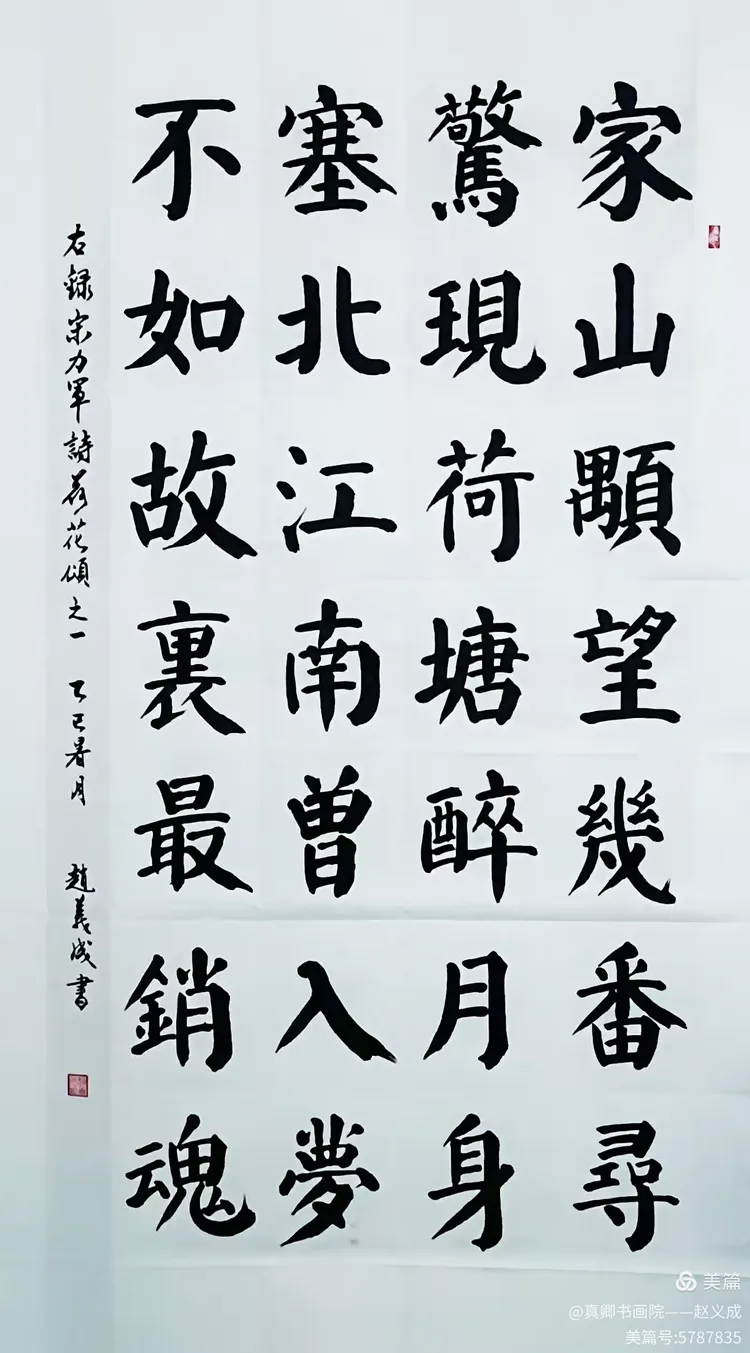 家山顒望幾番尋
驚現荷塘醉月身
塞北江南曾入夢
不如故裏最銷魂
右録宗力軍詩荷花頌之一 乙巳暑月 趙義成書
美篇
@真卿书画院——赵义成
美篇号:5787835